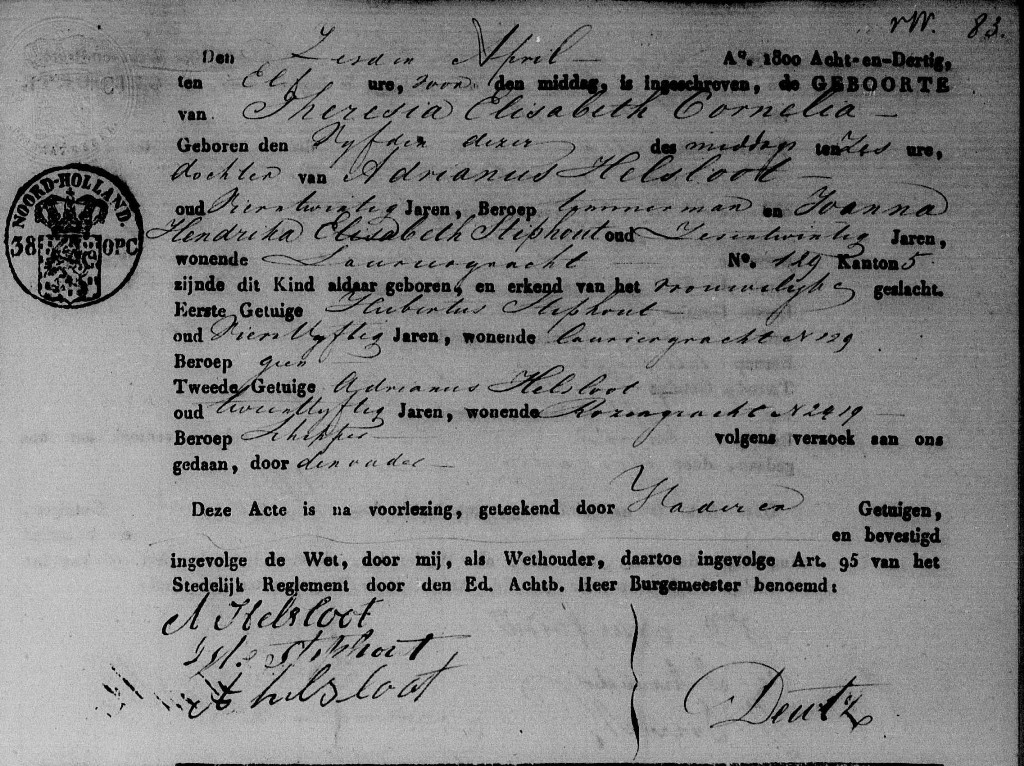 rW. 83.
Den Zesden April A°. 1800 Acht-en-Dertig,
ten Elf ure, voor den middag, is ingeschreven, de GEBOORTE
van Theresia Elisabeth Cornelia
Geboren den Vyfden dezer des middags ten Zes ure,
dochter van Adrianus Helsloot
oud Vierentwintig Jaren, Beroep Timmerman en Joanna
Hendrika Elisabeth Stiphout oud Zesentwintig Jaren,
wonende Lauriergracht N°. 129 Kanton 5
zijnde dit Kind aldaar geboren, en erkend van het vrouwelijke geslacht.
Eerste Getuige Hubertus Stiphout
oud Vierenvyftig Jaren, wonende Lauriergracht N 129
Beroep geen
Tweede Getuige Adrianus Helsloot
oud tweenvyftig Jaren, wonende Rozengracht N
Beroep Schipper volgens verzoek aan ons
gedaan, door den vader
Deze Acte is na voorlezing, geteekend door Vader en Getuigen,
en bevestigd
ingevolge de Wet, door mij, als Wethouder, daartoe ingevolge Art. 95 van het
Stedelijk Reglement door den Ed. Achtb. Heer Burgemeester benoemd:
A Helsloot
Stiphout
A helsloot
Deutz
NOORD-HOLLAND.
38 OPC